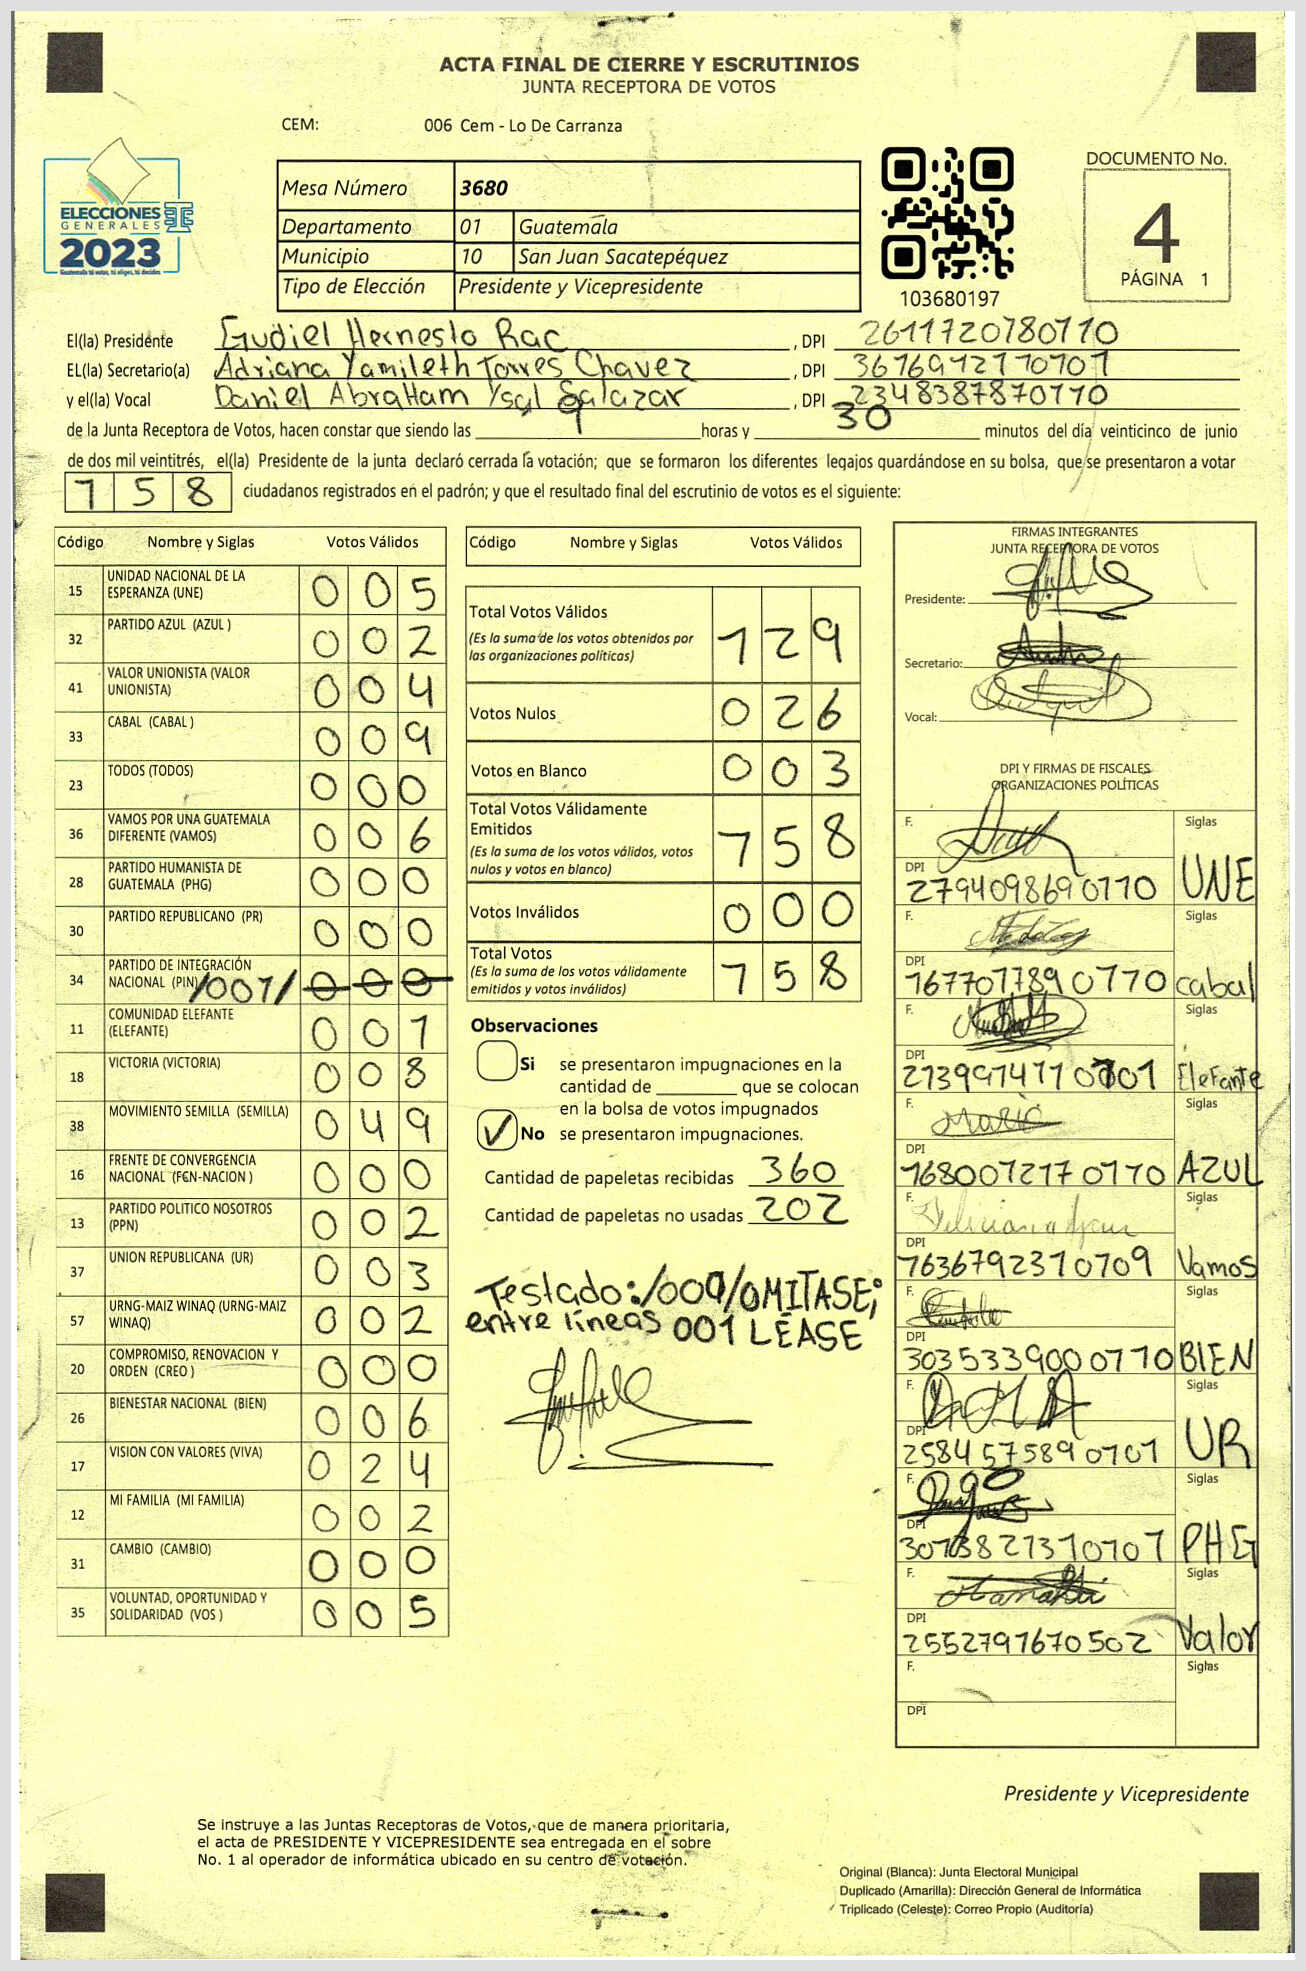 ACTA FINAL DE CIERRE Y ESCRUTINIOS
JUNTA RECEPTORA DE VOTOS
CEM: 006 Cem - Lo De Carranza
ELECCIONES
GENERALES
2023
Guatemala tú votas, tú eliges, tú decides
Mesa Número 3680
Departamento 01 Guatemala
Municipio 10 San Juan Sacatepéquez
Tipo de Elección Presidente y Vicepresidente
103680197
DOCUMENTO No.
4
PÁGINA 1
El(la) Presidente Gudiel Hernesto Rac, DPI 2611720780110
EL(la) Secretario(a) Adriana Yamileth Torres Chavez, DPI 3616912110101
y el(la) Vocal Daniel Abraham Ysal Salazar, DPI 2348387870110
de la Junta Receptora de Votos, hacen constar que siendo las 9 horas y 30 minutos del día veinticinco de junio
de dos mil veintitrés, el(la) Presidente de la junta declaró cerrada la votación; que se formaron los diferentes legajos guardándose en su bolsa, que se presentaron a votar
158 ciudadanos registrados en el padrón; y que el resultado final del escrutinio de votos es el siguiente:
Código Nombre y Siglas Votos Válidos
15 UNIDAD NACIONAL DE LA ESPERANZA (UNE) 005
32 PARTIDO AZUL (AZUL ) 002
41 VALOR UNIONISTA (VALOR UNIONISTA) 004
33 CABAL (CABAL ) 009
23 TODOS (TODOS) 000
36 VAMOS POR UNA GUATEMALA DIFERENTE (VAMOS) 006
28 PARTIDO HUMANISTA DE GUATEMALA (PHG) 000
30 PARTIDO REPUBLICANO (PR) 000
34 PARTIDO DE INTEGRACIÓN NACIONAL (PIN) /001/ 000
11 COMUNIDAD ELEFANTE (ELEFANTE) 001
18 VICTORIA (VICTORIA) 008
38 MOVIMIENTO SEMILLA (SEMILLA) 049
16 FRENTE DE CONVERGENCIA NACIONAL (FCN-NACION ) 000
13 PARTIDO POLITICO NOSOTROS (PPN) 002
37 UNION REPUBLICANA (UR) 003
57 URNG-MAIZ WINAQ (URNG-MAIZ WINAQ) 002
20 COMPROMISO, RENOVACION Y ORDEN (CREO ) 000
26 BIENESTAR NACIONAL (BIEN) 006
17 VISION CON VALORES (VIVA) 024
12 MI FAMILIA (MI FAMILIA) 002
31 CAMBIO (CAMBIO) 000
35 VOLUNTAD, OPORTUNIDAD Y SOLIDARIDAD (VOS ) 005
Código Nombre y Siglas Votos Válidos
Total Votos Válidos 129
(Es la suma de los votos obtenidos por
las organizaciones políticas)
Votos Nulos 026
Votos en Blanco 003
Total Votos Válidamente
Emitidos 158
(Es la suma de los votos válidos, votos
nulos y votos en blanco)
Votos Inválidos 000
Total Votos 158
(Es la suma de los votos válidamente
emitidos y votos inválidos)
Observaciones
Si se presentaron impugnaciones en la
cantidad de ________ que se colocan
en la bolsa de votos impugnados
No se presentaron impugnaciones.
Cantidad de papeletas recibidas 360
Cantidad de papeletas no usadas 202
Testado:/000/OMITASE;
entre líneas 001 LEASE
FIRMAS INTEGRANTES
JUNTA RECEPTORA DE VOTOS
Presidente:
Secretario:
Vocal:
DPI Y FIRMAS DE FISCALES
ORGANIZACIONES POLÍTICAS
F. Siglas
DPI 2794098690110 UNE
F. Siglas
DPI 1677017890110 cabal
F. Siglas
DPI Elefante
F. Mario Siglas
DPI 1680012170110 AZUL
F. Siglas
DPI 1636792310109 Vamos
F. Siglas
DPI 3035339000110 BIEN
F. Siglas
DPI 2584575890101 UR
F. Siglas
DPI PHG
F. Siglas
DPI 2552791670502 Valor
F. Siglas
DPI
Presidente y Vicepresidente
Se instruye a las Juntas Receptoras de Votos, que de manera prioritaria,
el acta de PRESIDENTE Y VICEPRESIDENTE sea entregada en el sobre
No. 1 al operador de informática ubicado en su centro de votación.
Original (Blanca): Junta Electoral Municipal
Duplicado (Amarilla): Dirección General de Informática
Triplicado (Celeste): Correo Propio (Auditoría)